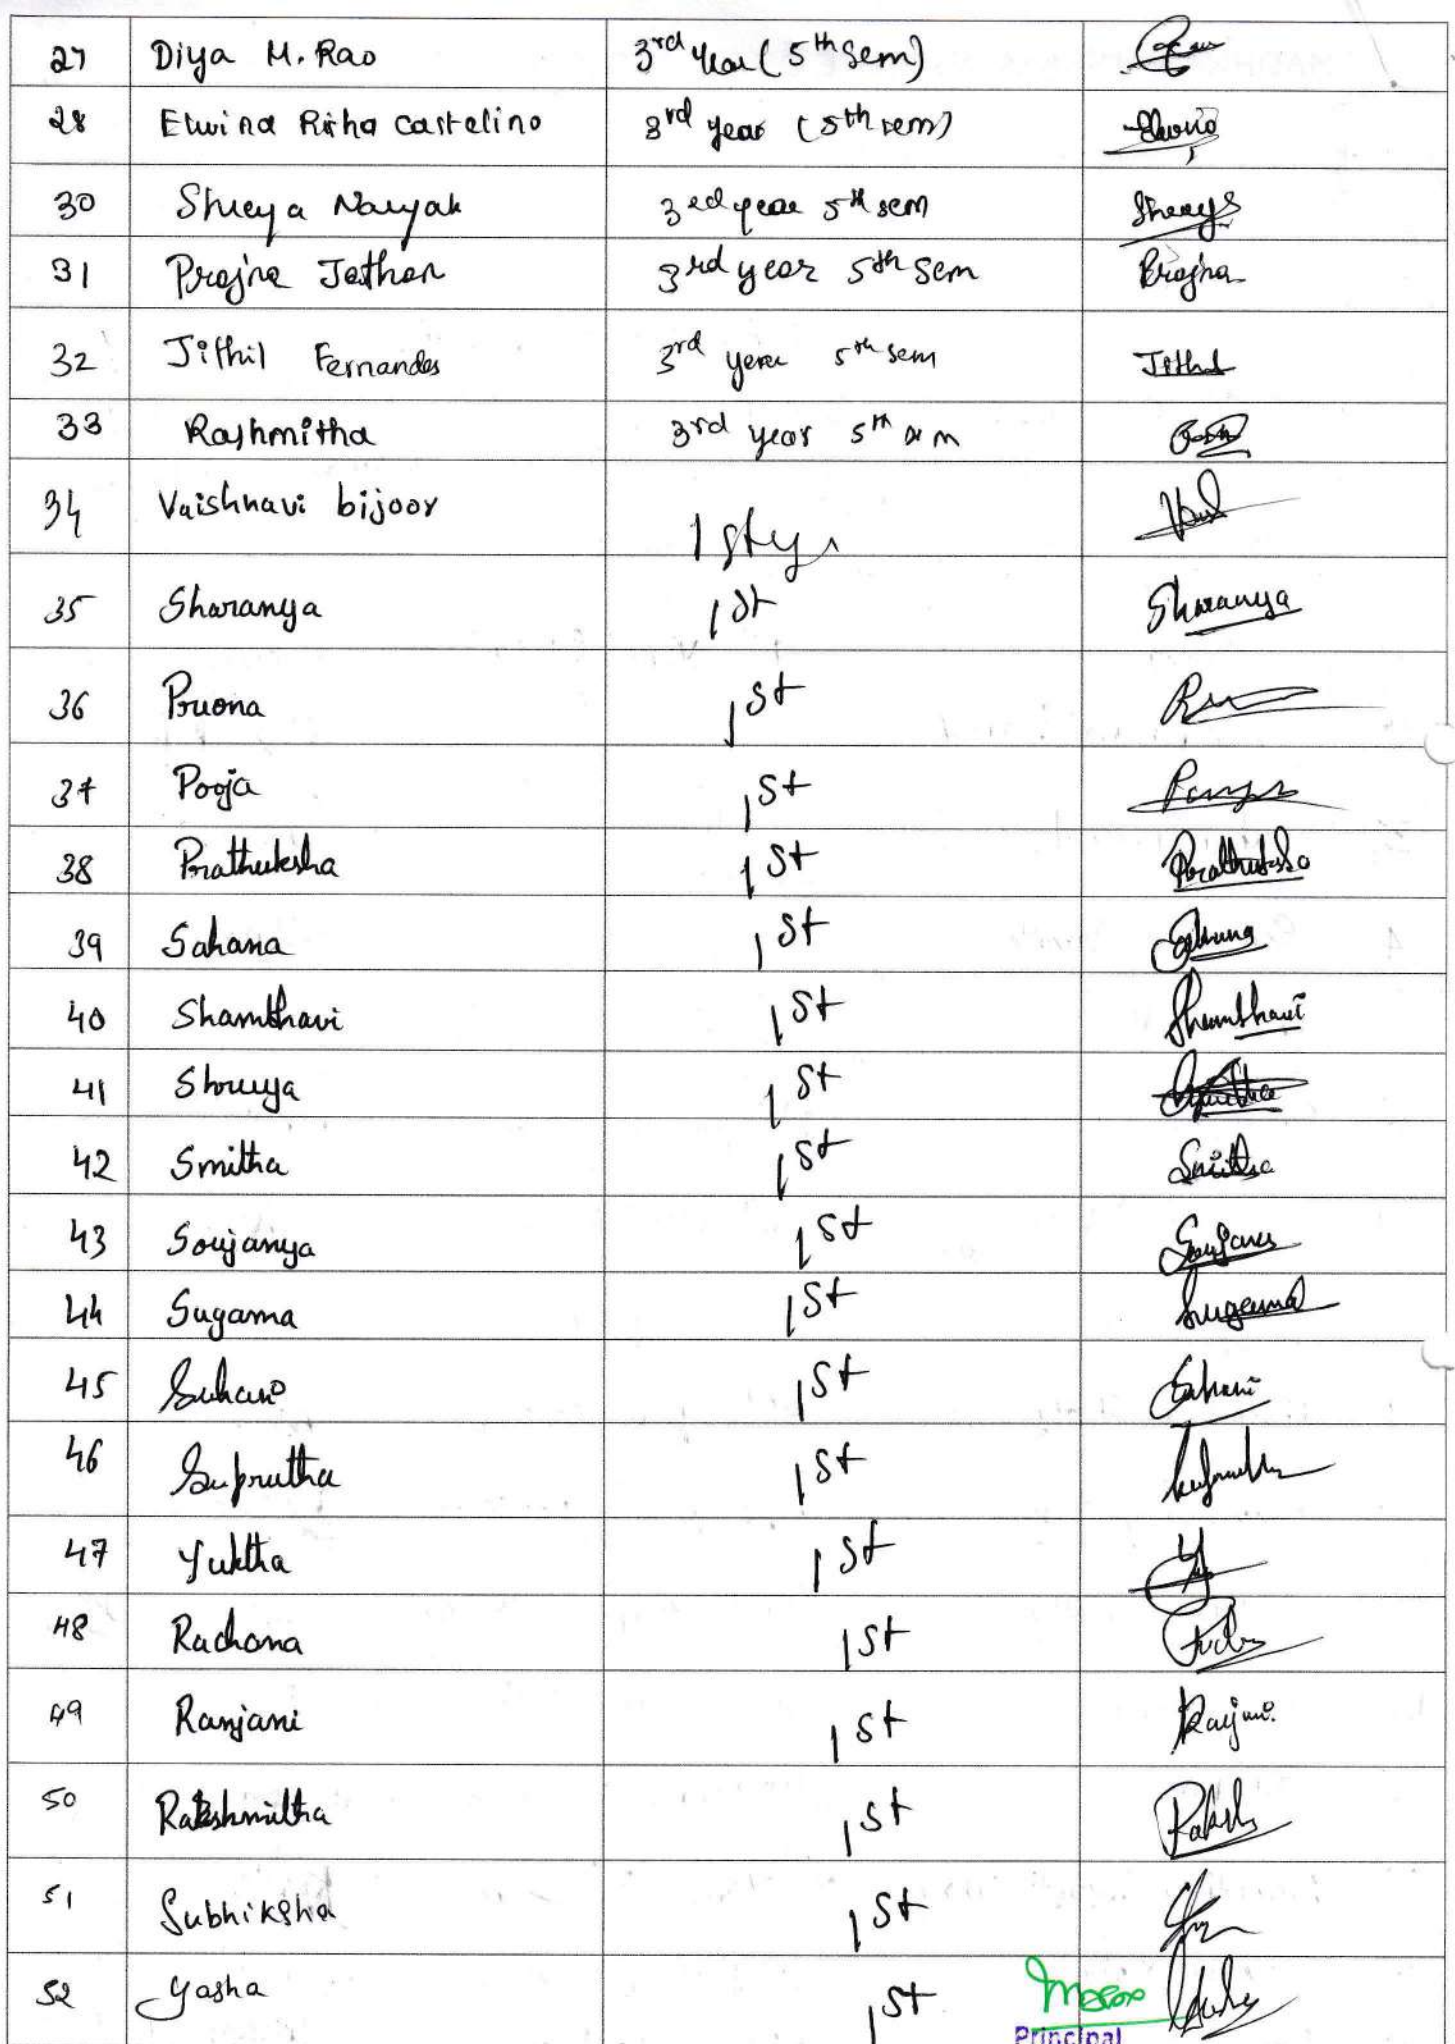 27 Diya M. Rao 3rd year (5th sem)
28 Elwina Risha Castelino 3rd year (5th sem)
30 Shreya Nayak 3rd year 5th sem Shreya
31 Prajna Jathan 3rd year 5th sem Prajna
32 Jithil Fernandes 3rd year 5th sem Jithil
33 Rashmitha 3rd year 5th sem
34 Vaishnavi bijoor 1st yr
35 Sharanya 1st Sharanya
36 1st
37 Pooja 1st
38 Prathuksha 1st Prathuksha
39 Sahana 1st Sahana
40 Shambhavi 1st Shambhavi
41 1st
42 Smitha 1st Smitha
43 Soujanya 1st
44 Sugama 1st Sugama
45 Suhani 1st Suhani
46 Suprutha 1st
47 Yuktha 1st
48 Rachana 1st
49 Ranjani 1st
50 Rakshmitha 1st
51 Subhiksha 1st
52 Yasha 1st
Principal